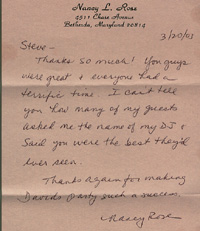 Nancy L. Rose
4511 Chase Avenue
Bethesda, Maryland 20814
3/20/03
Steve -
Thanks so much! You guys
were great & everyone had a
terrific time. I can't tell
you how many of my guests
asked me the name of my DJ &
said you were the best they'd
ever seen.
Thanks again for making
David's party such a success.
Nancy Rose